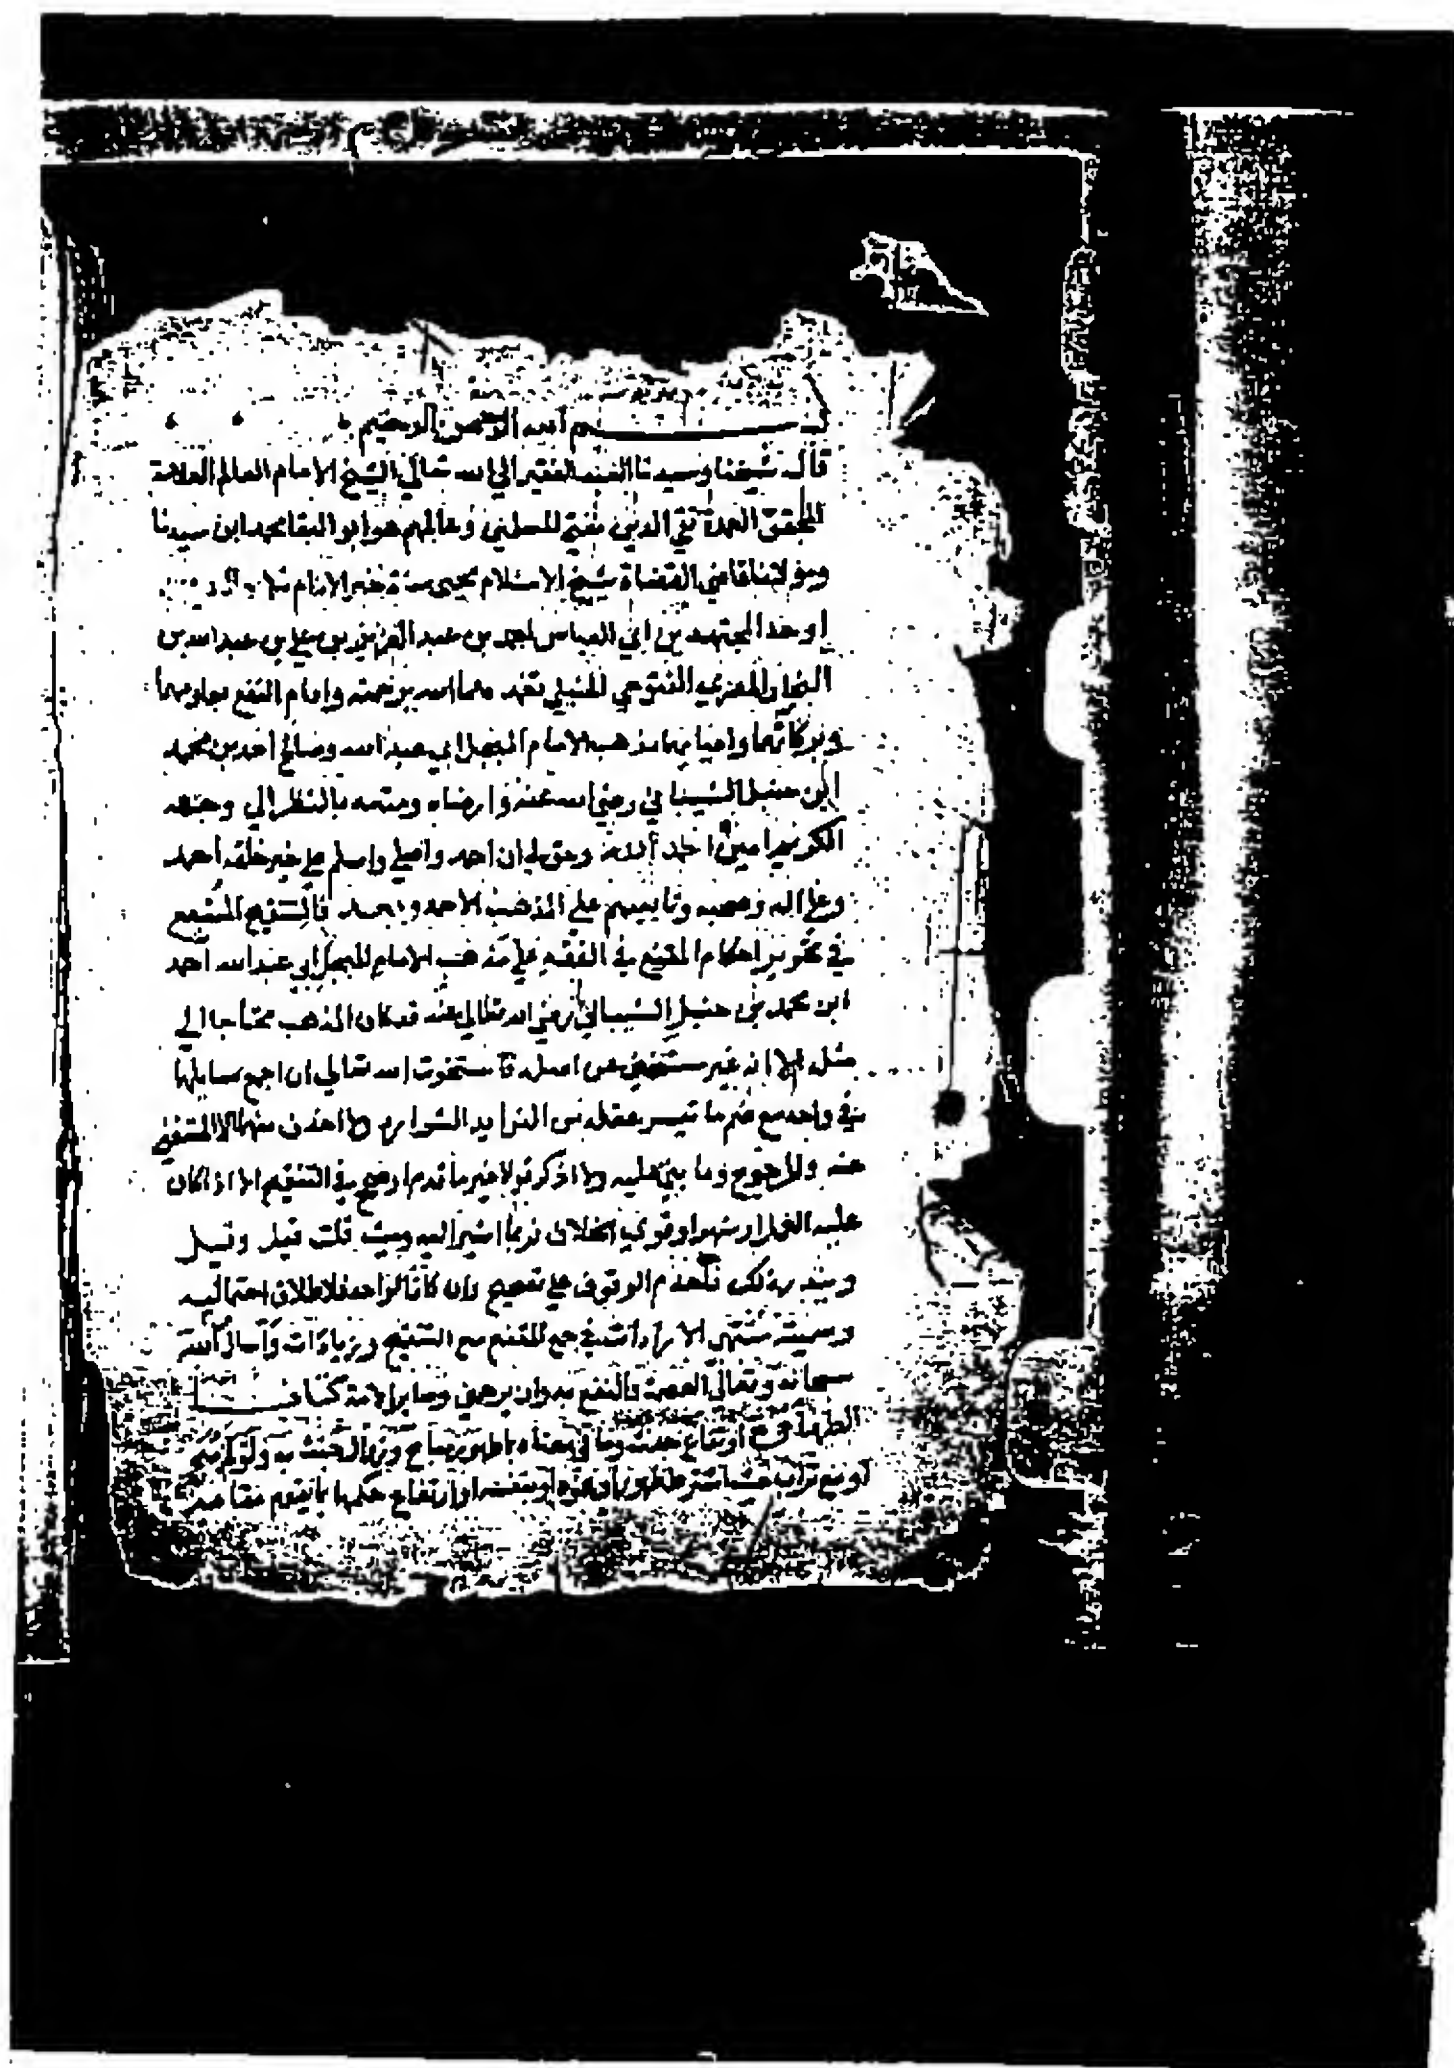 بسم الله الرحمن الرحيم
قال شيخنا وسيدنا العبد الفقير الي الله تعالي الشيخ الامام العالم العلامة
المحقق العمدة تقي الدين مفتي المسلمين وعالمهم هو ابو البقا محمد ابن سيدنا
ومولانا قاضي القضاة شيخ الاسلام محيي سنة خير الانام
اوحد المجتهدين ابي العباس احمد بن عبد العزيز بن علي بن عبد الله بن
النجار المصري الفتوحي الحنبلي تغمدهما الله برحمته وادام النفع بعلومهما
وبركاتهما واحيا بهما مذهب الامام المبجل ابي عبد الله وصالح احمد بن محمد
ابن حنبل الشيباني رضي الله عنه وارضاه ومتعه بالنظر الي وجهه
الكريم امين احمد الله وحق لي ان احمد واصلي واسلم علي خير خلقه احمد
وعلي اله وصحبه وتابعيهم علي المذهب الاحمد وبعد فالتنقيح المشبع
في تحرير احكام المقنع في الفقه علي مذهب الامام المبجل ابي عبد الله احمد
ابن محمد بن حنبل الشيباني رضي الله تعالي عنه قد كان المذهب محتاجا الي
مثله الا انه غير مستغن عن اصله فاستخرت الله تعالي ان اجمع مسايلهما
في واحد مع ضم ما تيسر عقله من الفوايد الشوارد ولا احذف منهما الا المستغني
عنه والمرجوح وما بني عليه ولا اذكر قولا غير ما قدم او صحح في التنقيح الا اذا كان
عليه العمل او شهر او قوي الخلاف فربما اشير اليه وحيث قلت قيل وقيل
ويندر ذلك فلعدم الوقوف علي تصحيح وان كانا لواحد فلاطلاق احتماليه
وسميته منتهي الارادات في جمع المقنع مع التنقيح وزيادات واسال الله
سبحانه وتعالي العصمة والنفع به وان يرحمني وساير الامة كتاب
الطهارة ارتفاع حدث وما في معناه بماطهور مباح وزوال خبث به ولو لم يبح
او مع تراب طهور او نحوه او بنفسه او ارتفاع حكمهما بما يقوم مقامه